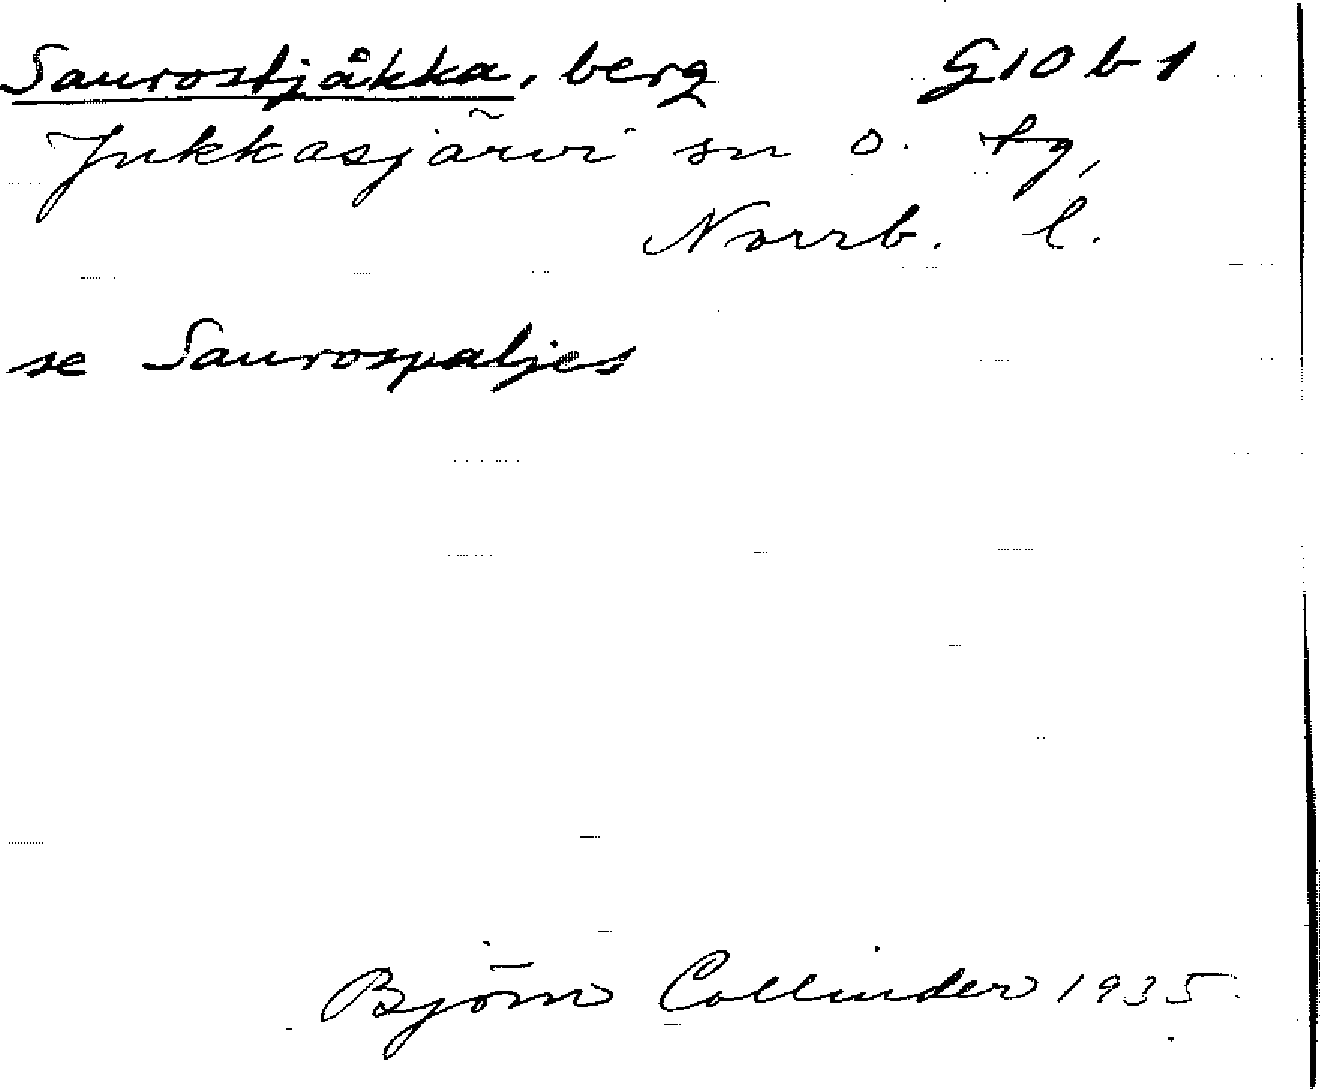 Saurostjåkka, berg G10b1
Jukkasjärvi sn o. tg,
Norrb. l.
se Saurospaljes
Björn Collinder 1935.